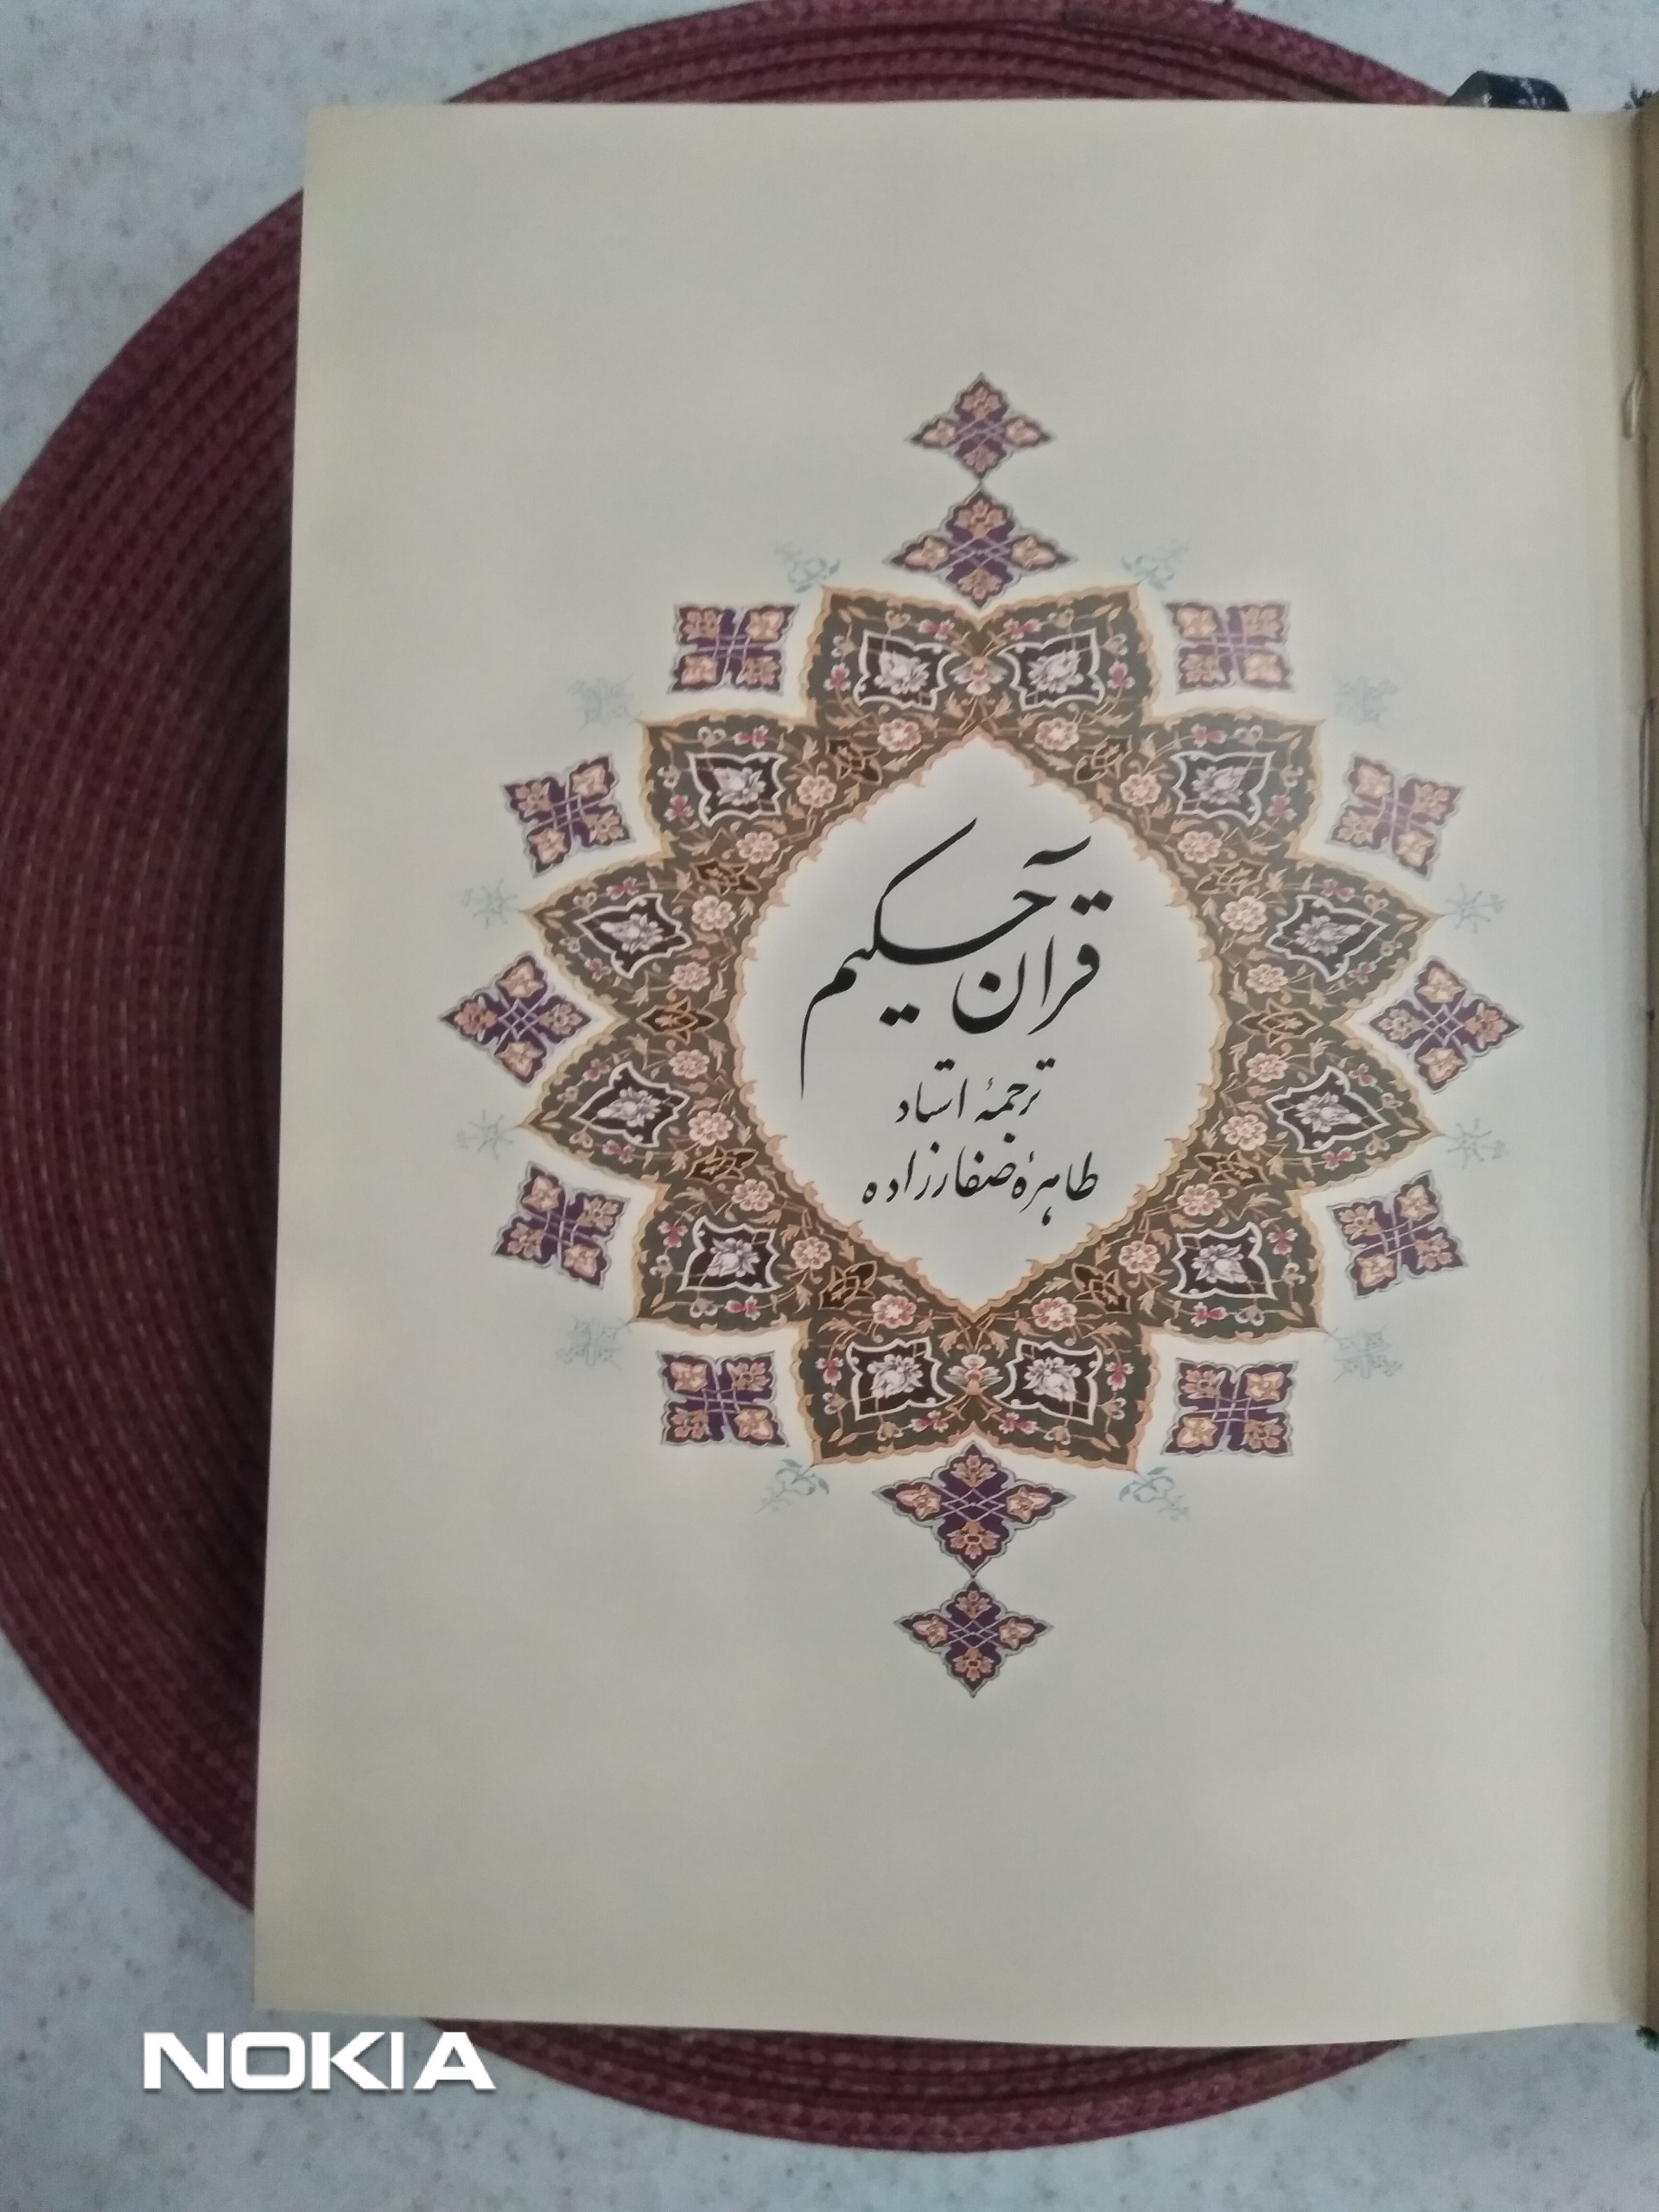 قرآن حکیم
ترجمهٔ استاد
طاهرهٔ صفارزاده
NOKIA